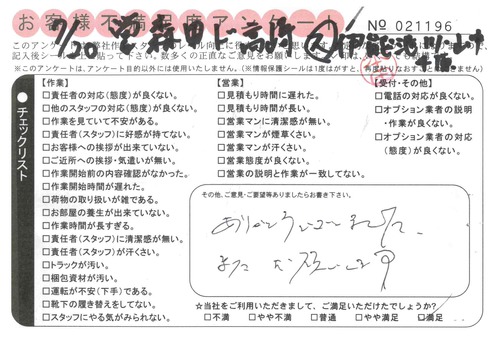 お客様不満足度アンケート
No 021196
7/20
【作業】
□責任者の対応(態度)が良くない。
□他のスタッフの対応(態度)が良くない。
□作業を見ていて不安がある。
□責任者(スタッフ)に好感が持てない。
□お客様への挨拶が出来ていない。
□ご近所への挨拶・気遣いが無い。
□作業開始前の内容確認がなかった。
□作業開始時間が遅れた。
□荷物の取り扱いが雑である。
□お部屋の養生が出来ていない。
□作業時間が長すぎる。
□責任者(スタッフ)に清潔感が無い。
□責任者(スタッフ)が汗くさい。
□トラックが汚い。
□梱包資材が汚い。
□運転が不安(下手)である。
□靴下の履き替えをしてない。
□スタッフにやる気がみられない。
チェックリスト
【営業】
□見積もり時間に遅れた。
□見積もり時間が長い。
□営業マンに清潔感が無い。
□営業マンが煙草くさい。
□営業マンが汗くさい。
□営業態度が良くない。
□営業の説明と作業が一致してない。
【受付・その他】
□電話の対応が良くない。
□オプション業者の説明
・作業が良くない。
□オプション業者の対応
(態度)が良くない。
その他、ご意見・ご要望等ありましたらお書き下さい。
ありがとうございました。
また お願いします
☆当社をご利用いただきまして、ご満足いただけたでしょうか?
□不満 □やや不満 □普通 □やや満足 ☑満足